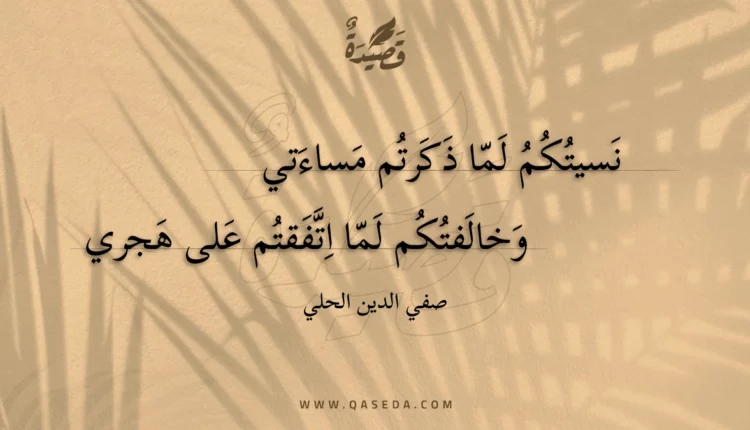 قَصِيدَةٌ
نَسيتُكُمُ لَمّا ذَكَرتُم مَساءَتي
وَخالَفتُكُم لَمّا اِتَّفَقتُم عَلى هَجري
صفي الدين الحلي
WWW.QASEDA.COM